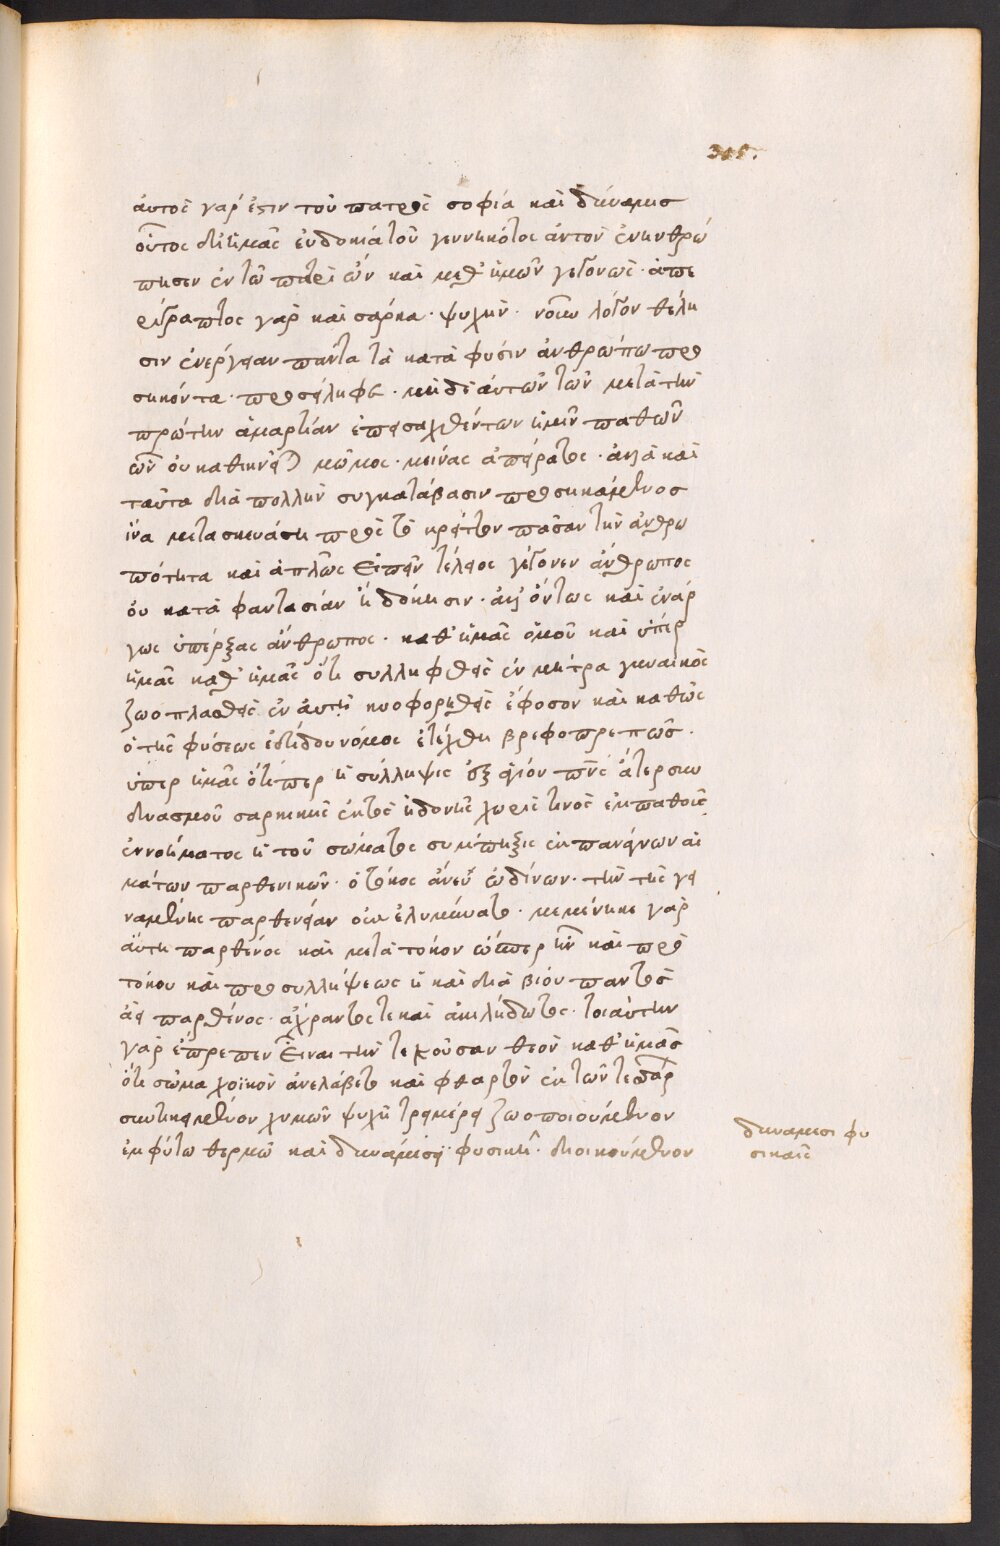 αὐτὸς γάρ ἐστιν τοῦ πατρὸς σοφία καὶ δύναμισ
οὗτος δι' ἡμᾶς εὐδοκία τοῦ γεννηκότος αὐτὸν ἐνηνθρώ
πησεν ἐν τῶ πατρὶ ὢν καὶ μεθ' ἡμῶν γεγονὼς · ἀπε
ρίγραπτος γὰρ καὶ σάρκα · ψυχὴν · νοῦν λόγον θέλη
σιν ἐνέργειαν πάντα τὰ κατὰ φύσιν ἀνθρώπω προ
σηκόντα · προσείληφε · μηδὲ αὐτῶν τῶν μετὰ τὴν
πρώτην ἁμαρτίαν ἐπεισαχθέντων ἡμῖν παθῶν
ὧν οὐ καθικνεῖται μῶμος · μείνας ἀπείρατος · ἀλλὰ καὶ
ταῦτα διὰ πολλὴν συγκατάβασιν προσηκάμενοσ
ἵνα μετασκευάση πρὸς τὸ κρεῖττον πᾶσαν τὴν ἀνθρω
πότητα καὶ ἁπλῶς εἰπεῖν τέλειος γέγονεν ἄνθρωπος
οὐ κατὰ φαντασίαν ἢ δόκησιν · ἀλλ' ὄντως καὶ ἐναρ
γως ὑπάρξας ἄνθρωπος · καθ' ἡμᾶς ὁμοῦ καὶ ὑπὲρ
ἡμᾶς καθ' ἡμᾶς ὅτι συλληφθεὶς ἐν μήτρα γυναικὸς
ζωοπλασθεὶς ἐν αὐτῇ κυοφορηθεὶς ἐφοσον καὶ καθὼς
ὁ τῆς φύσεως ἐδίδου νόμος ἐτέχθη βρεφοπρεπῶσ ·
ὑπερ ἡμᾶς ὅτιπερ ἡ σύλληψις ἐξ ἁγίου πνς ἄτερ συν
δυασμοῦ σαρκικῆς ἐκτὸς ἡδονῆς χωρὶς τινὸς ἐμπαθοῦς
ἐννοήματος ἡ τοῦ σώματος συμπηξις ἐκ παναγνων αἱ
μάτων παρθενικῶν · ὁ τόκος ἄνευ ὠδίνων · τὴν τῆς γει
ναμένης παρθενείαν οὐκ ἐλυμήνατο · μεμένηκε γὰρ
αὕτη παρθένος καὶ μετὰ τόκον ὥσπερ ἦν καὶ πρὸ
τόκου καὶ προ συλλήψεως ἡ καὶ διὰ βίου παντὸς
ἀεὶ παρθένος · ἀχράντος τε καὶ ἀκιλήδωτος · τοιαύτην
γὰρ ἔπρεπεν εἶναι τὴν τεκοῦσαν θεὸν καθ' ἡμᾶσ
ὅτι σῶμα χοϊκὸν ἀνελάβετο καὶ φθαρτὸν ἐκ τῶν τεσσάρ
συντηκείμενον χυμῶν ψυχῆ τριμερεῖ ζωοποιουμενον
ἐμφύτω θερμῶ καὶ δυνάμεσι φυσικῆ · διοικούμενον
δυναμεσι φυ
σικαῖς